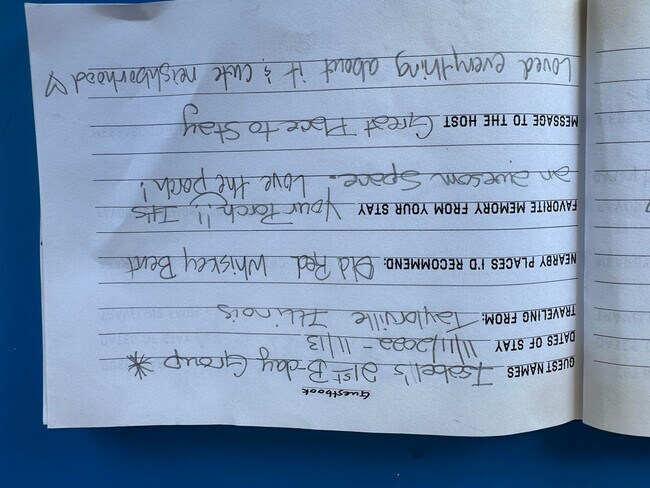 Guestbook
GUEST NAMES Isabel's 21st B-day Group *
DATES OF STAY 11/11/2022 - 11/13
TRAVELING FROM: Taylorville Illinois
NEARBY PLACES I'D RECOMMEND: Old Red Whiskey Bent
FAVORITE MEMORY FROM YOUR STAY Your Porch!! It's
an awesom space. Love the porch!
MESSAGE TO THE HOST Great Place to Stay
Loved everything about it & cute neighborhood ♡